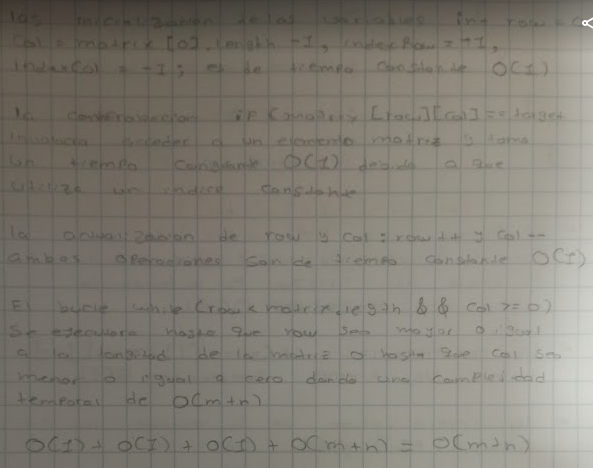 las inicialización de las variables int row = 0
Col = matrix [0].length -1, indexRow = -1,
indexCol = -1; es de tiempo constante O(1)
la comparación if (matrix [row][col] == target
involucra acceder a un elemento matriz y toma
un tiempo constante O(1) debido a que
utiliza un indice constante
la actualización de row y col : row ++ y col --
ambas operaciones son de tiempo constante O(1)
El bucle while (row < matrix.length && col >= 0)
Se ejecutara hasta que row sea mayor o igual
a la longitud de la matriz o hasta que col sea
menor o igual a cero dando una complejidad
temporal de O(m+n)
O(1) + O(1) + O(1) + O(m+n) = O(m+n)